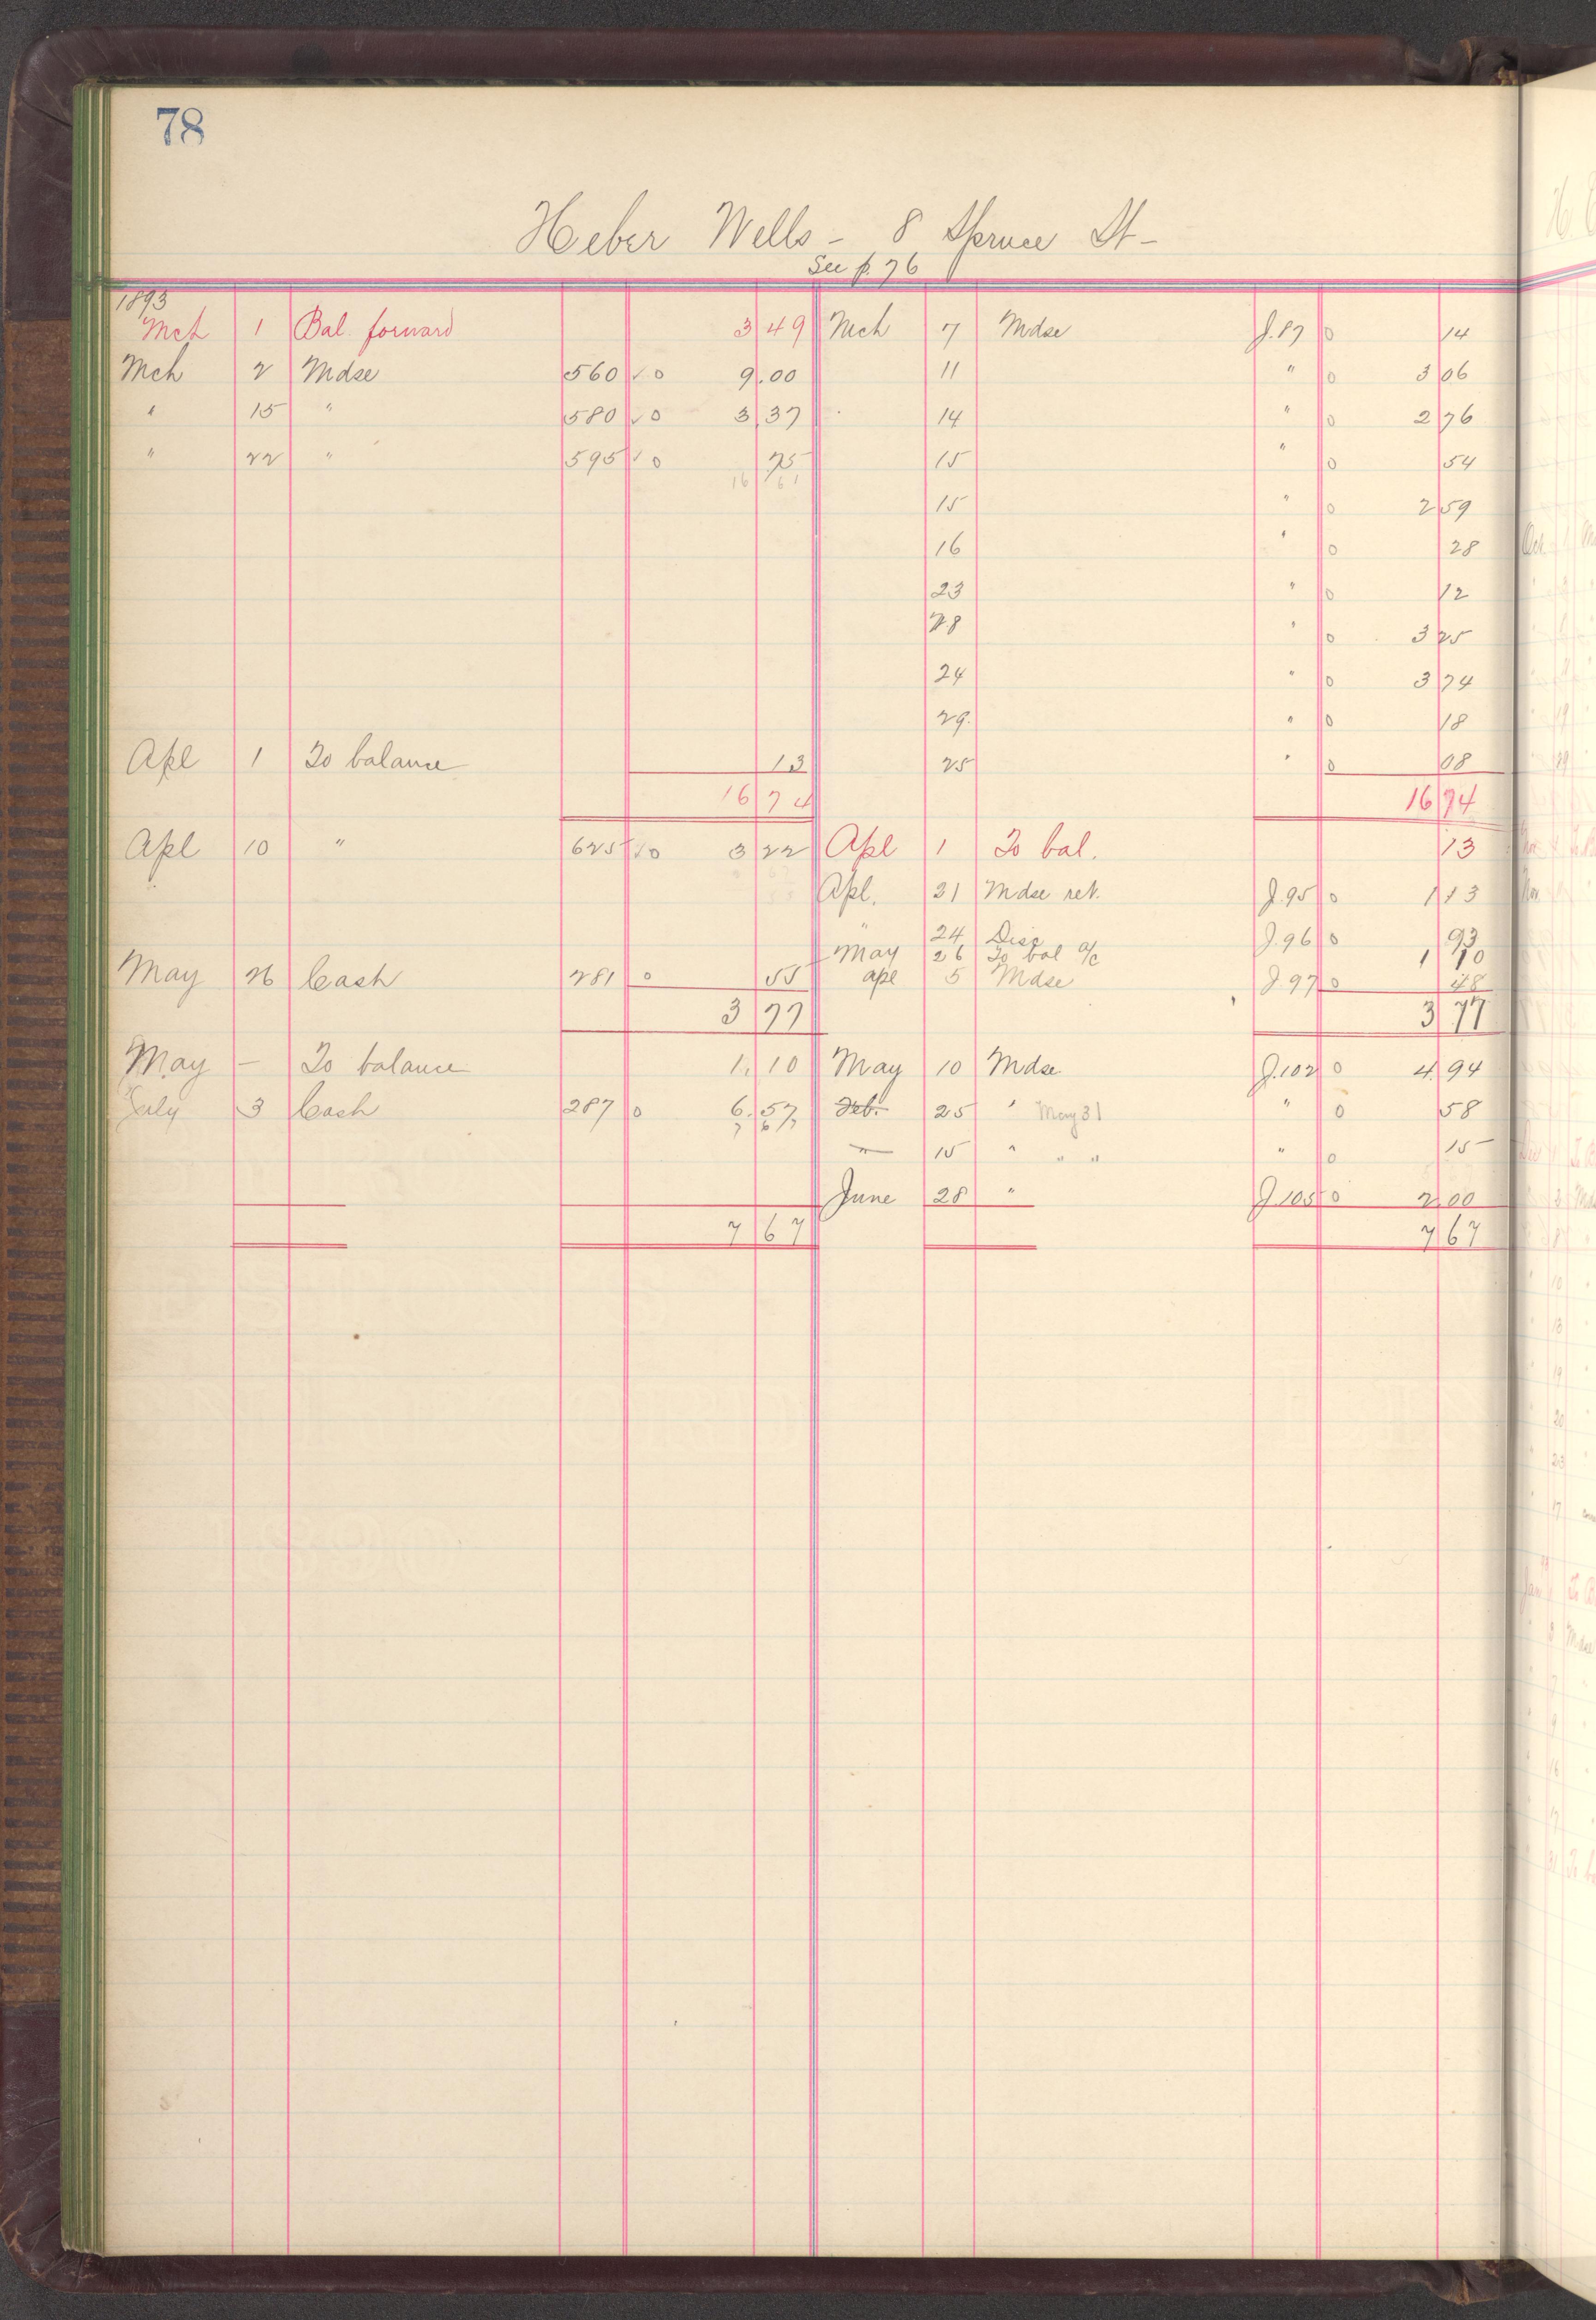 78
Heber Wells - 8 Spruce St -
See p. 76
1893
Mch 1 Bal. forward 3 49 Mch 7 Mdse J. 87 0 14
Mch 2 Mdse 560 ✓ 0 9.00 11 " 0 3 06
" 15 " 580 ✓ 0 3 37 14 " 0 2 76
" 22 " 595 ✓ 0 75 15 " 0 54
16 61
15 " 0 2 59
16 " 0 28
23 " 0 12
28 " 0 3 25
24 " 0 3 74
29. " 0 18
Apl 1 To balance 13 25 " 0 08
16 74 16 74
Apl 10 " 625 ✓ 0 3 22 Apl 1 To bal. 13
Apl. 21 Mdse ret. J. 95 0 1 13
" 24 Disc J. 96 0 93
May 26 To bal a/c 1 10
May 26 Cash 281 0 55 Apl 5 Mdse J. 97 0 48
3 77 3 77
May - To balance 1. 10 May 10 Mdse J. 102 0 4. 94
July 3 Cash 287 0 6. 57 Feb. 25 " May 31 " 0 58
7 67
" 15 " " " " 0 15
June 28 " J. 105 0 2 00
7 67 7 67